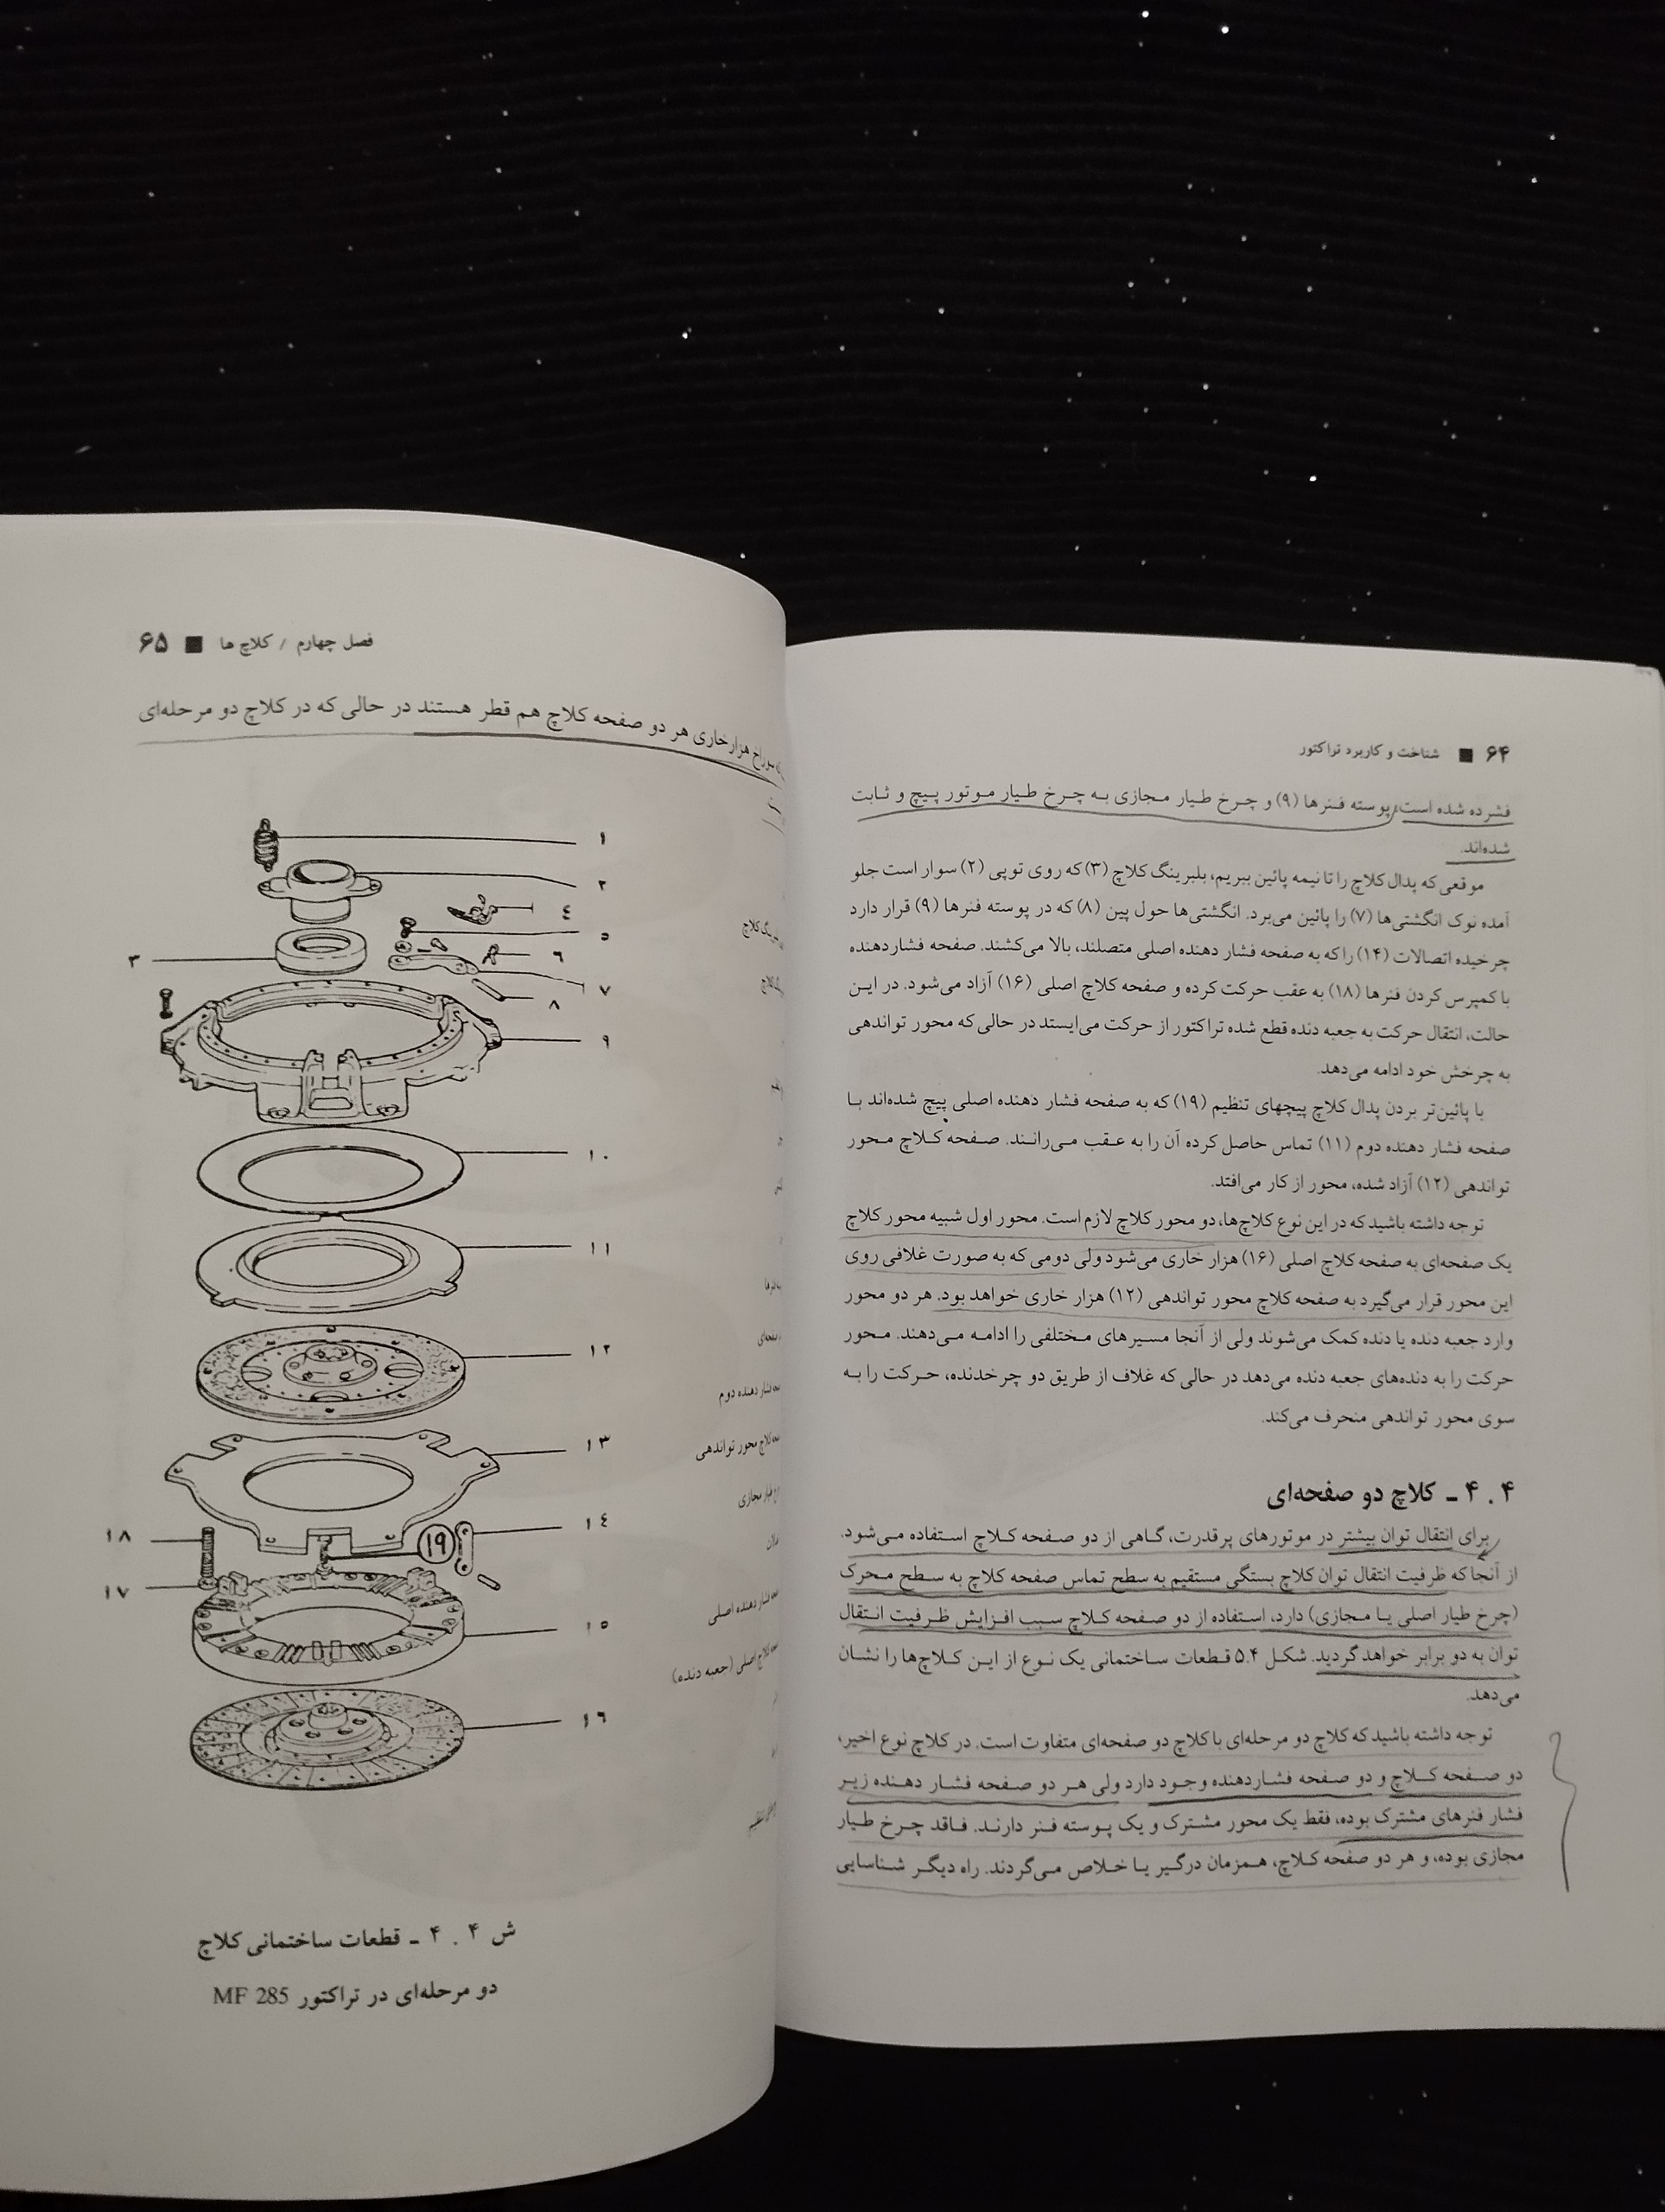 ۶۴ ■ شناخت و کاربرد تراکتور
فشرده شده است، پوسته فنرها (۹) و چرخ طیار مجازی به چرخ طیار موتور پیچ و ثابت
شده‌اند.
موقعی که پدال کلاچ را تا نیمه پائین ببریم، بلبرینگ کلاچ (۳) که روی توپی (۲) سوار است جلو
آمده نوک انگشتی‌ها (۷) را پائین می‌برد. انگشتی‌ها حول پین (۸) که در پوسته فنرها (۹) قرار دارد
چرخیده اتصالات (۱۴) را که به صفحه فشار دهنده اصلی متصلند، بالا می‌کشند. صفحه فشاردهنده
با کمپرس کردن فنرها (۱۸) به عقب حرکت کرده و صفحه کلاچ اصلی (۱۶) آزاد می‌شود. در این
حالت، انتقال حرکت به جعبه دنده قطع شده تراکتور از حرکت می‌ایستد در حالی که محور تواندهی
به چرخش خود ادامه می‌دهد.
با پائین‌تر بردن پدال کلاچ پیچهای تنظیم (۱۹) که به صفحه فشار دهنده اصلی پیچ شده‌اند با
صفحه فشار دهنده دوم (۱۱) تماس حاصل کرده آن را به عقب می‌رانند. صفحه کلاچ محور
تواندهی (۱۲) آزاد شده، محور از کار می‌افتد.
توجه داشته باشید که در این نوع کلاچ‌ها، دو محور کلاچ لازم است. محور اول شبیه محور کلاچ
یک صفحه‌ای به صفحه کلاچ اصلی (۱۶) هزار خاری می‌شود ولی دومی که به صورت غلافی روی
این محور قرار می‌گیرد به صفحه کلاچ محور تواندهی (۱۲) هزار خاری خواهد بود. هر دو محور
وارد جعبه دنده یا دنده کمک می‌شوند ولی از آنجا مسیرهای مختلفی را ادامه می‌دهند. محور
حرکت را به دنده‌های جعبه دنده می‌دهد در حالی که غلاف از طریق دو چرخدنده، حرکت را به
سوی محور تواندهی منحرف می‌کند.
۴ . ۴ ـ کلاچ دو صفحه‌ای
برای انتقال توان بیشتر در موتورهای پرقدرت، گاهی از دو صفحه کلاچ استفاده می‌شود.
از آنجا که ظرفیت انتقال توان کلاچ بستگی مستقیم به سطح تماس صفحه کلاچ به سطح محرک
(چرخ طیار اصلی یا مجازی) دارد، استفاده از دو صفحه کلاچ سبب افزایش ظرفیت انتقال
توان به دو برابر خواهد گردید. شکل ۵.۴ قطعات ساختمانی یک نوع از این کلاچ‌ها را نشان
می‌دهد.
توجه داشته باشید که کلاچ دو مرحله‌ای با کلاچ دو صفحه‌ای متفاوت است. در کلاچ نوع اخیر،
دو صفحه کلاچ و دو صفحه فشاردهنده وجود دارد ولی هر دو صفحه فشار دهنده زیر
فشار فنرهای مشترک بوده، فقط یک محور مشترک و یک پوسته فنر دارند. فاقد چرخ طیار
مجازی بوده، و هر دو صفحه کلاچ، همزمان درگیر یا خلاص می‌گردند. راه دیگر شناسایی
فصل چهارم / کلاچ ها ■ ۶۵
سوراخ هزارخاری هر دو صفحه کلاچ هم قطر هستند در حالی که در کلاچ دو مرحله‌ای
۱
۲
٤
۵
۳
٦
۷
۸
۹
۱۰
۱۱
۱۲
۱۳
۱٤
۱۸
19
۱۷
۱۵
۱٦
کلاچ
فشار دهنده دوم
کلاچ محور تواندهی
طیار مجازی
فشار دهنده اصلی
کلاچ اصلی (جعبه دنده)
تنظیم
ش ۴ . ۴ ـ قطعات ساختمانی کلاچ
دو مرحله‌ای در تراکتور MF 285